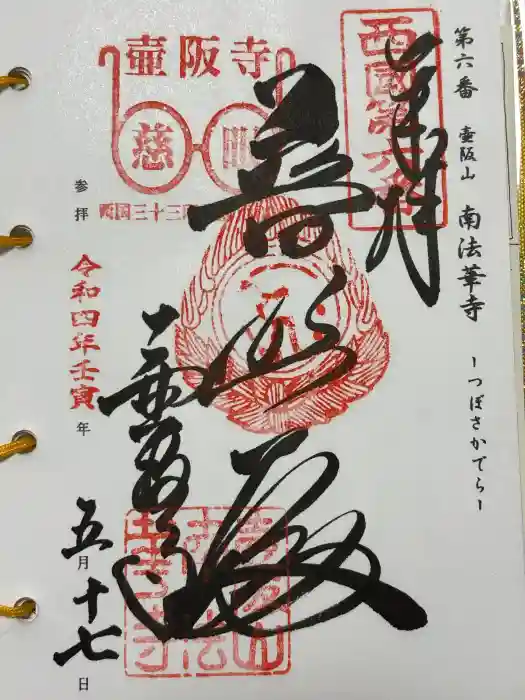 第六番 壺阪山 南法華寺 ーつぼさかでらー
奉拝
西國第六番
普照殿
壺阪寺
壺阪寺
慈眼
西国三十三所
参拝
令和四年壬寅年
五月十七日